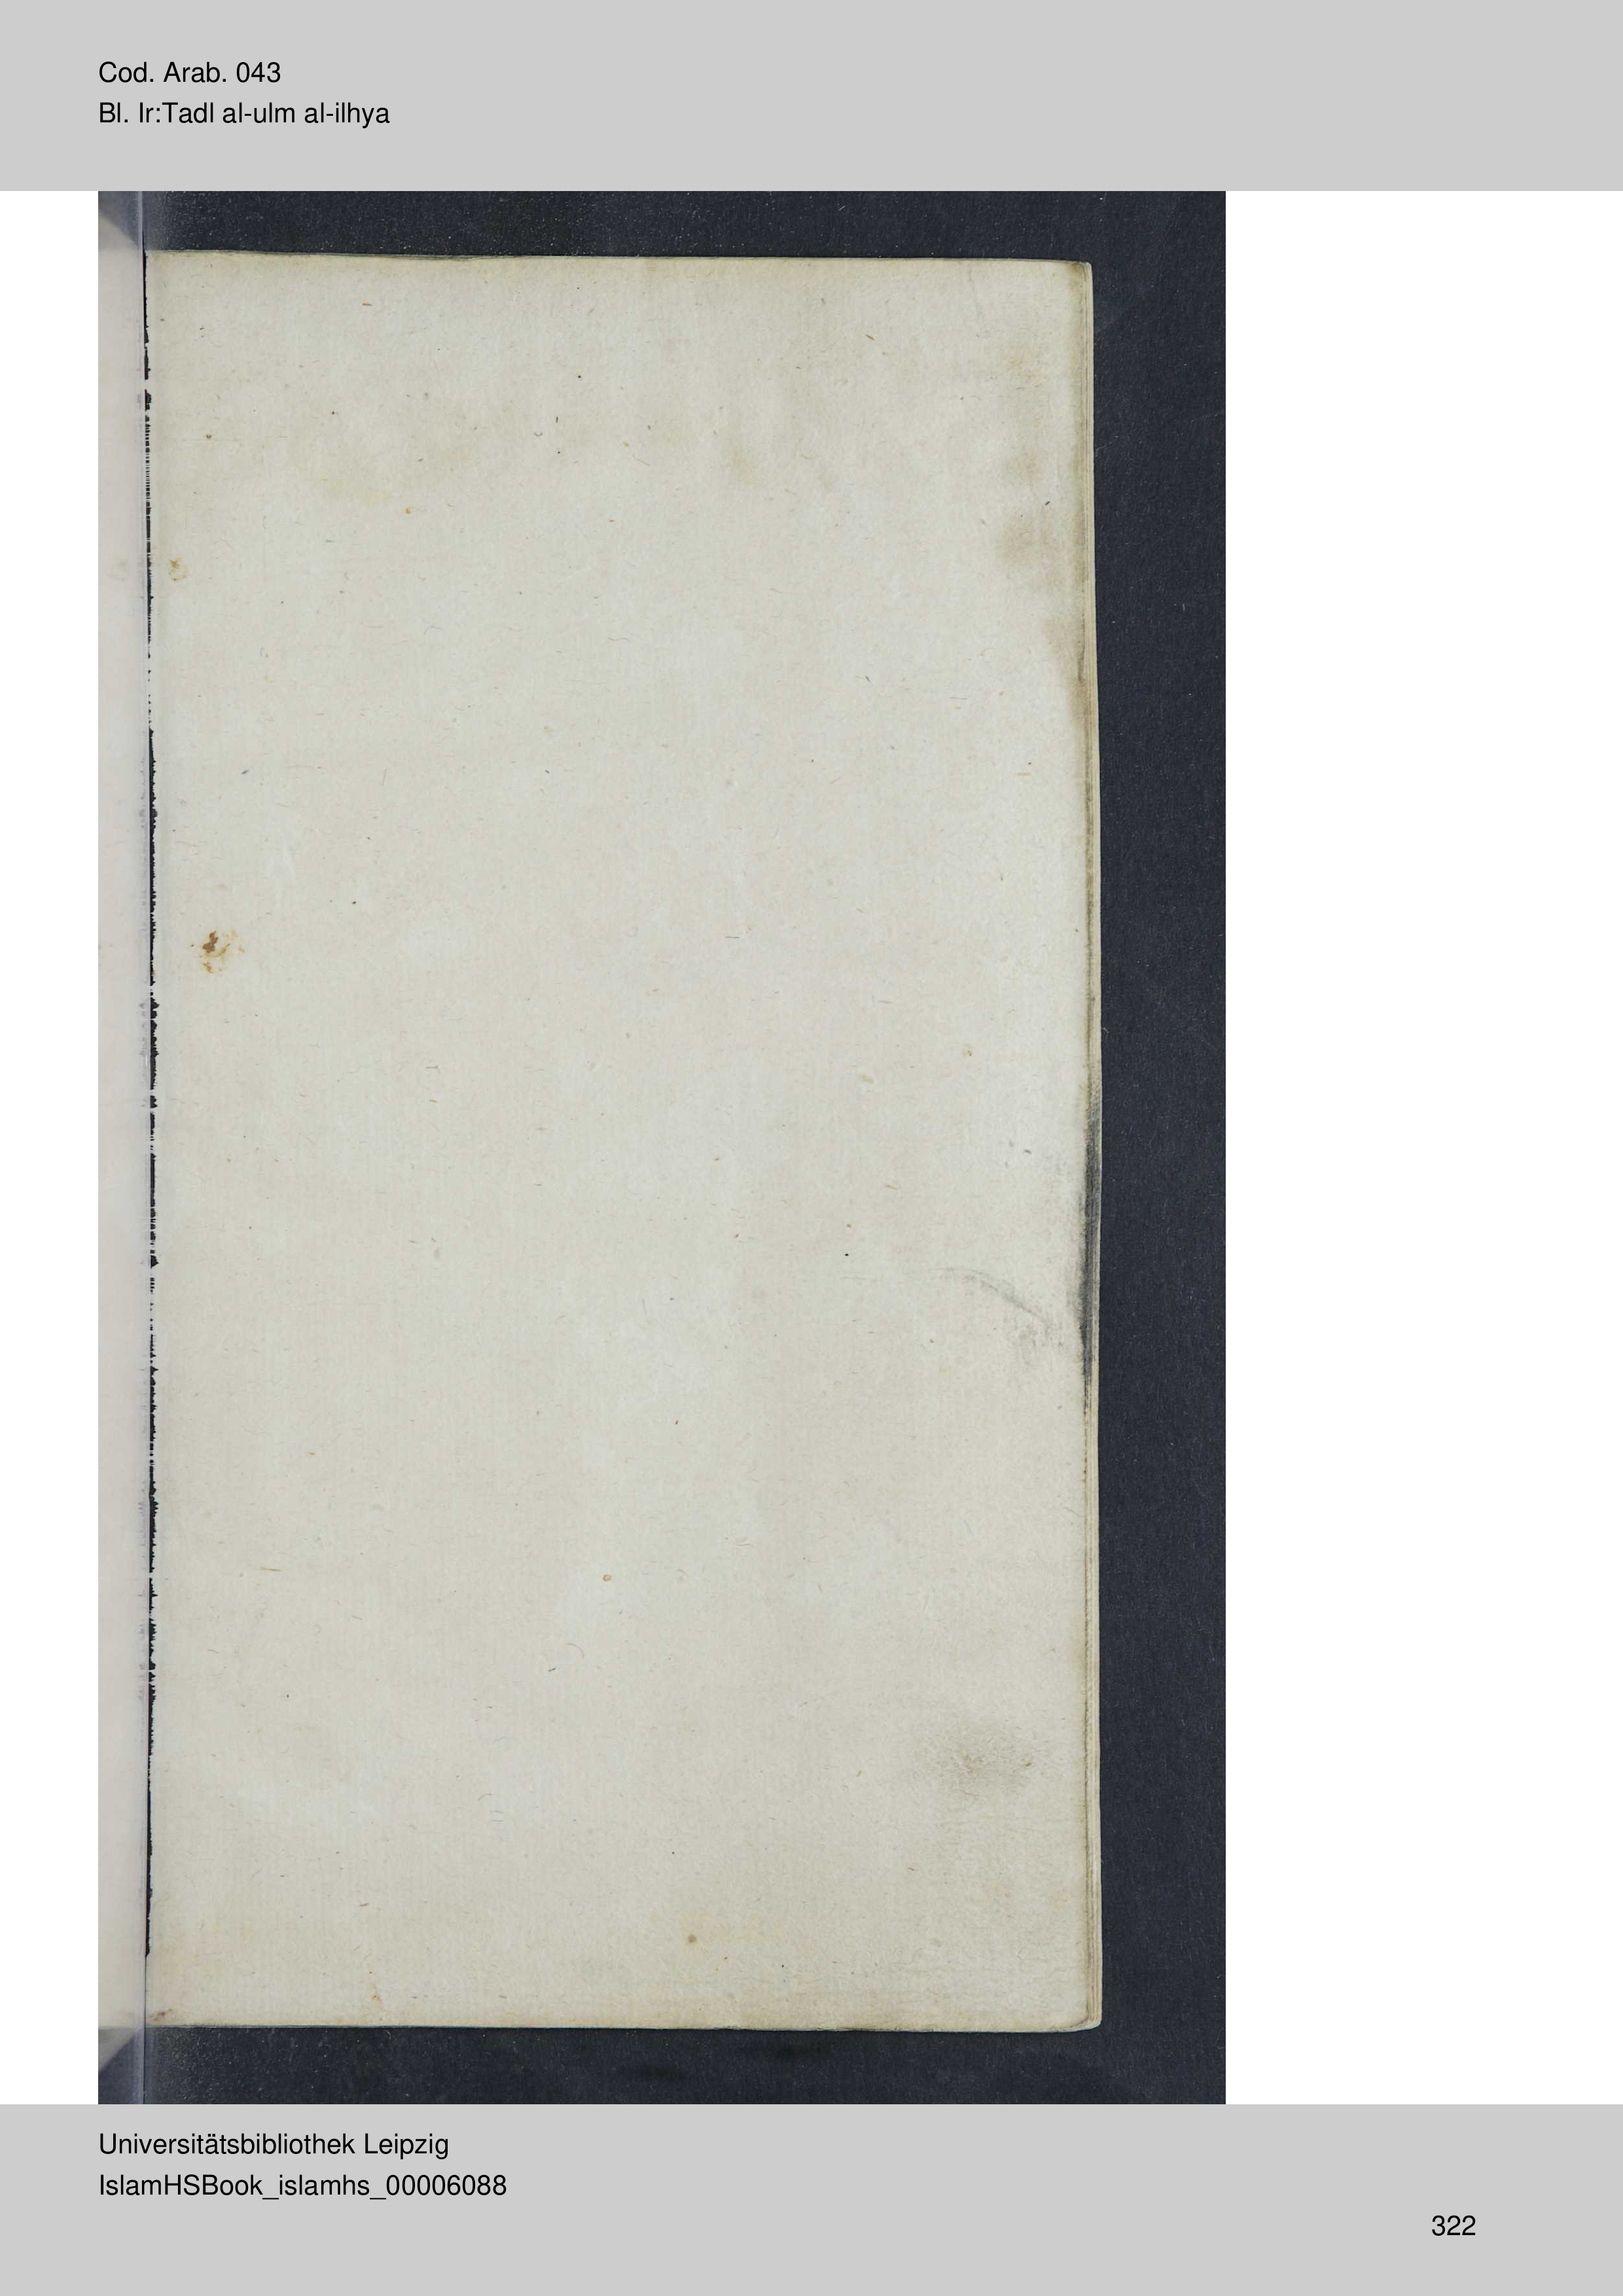 Cod. Arab. 043
Bl. Ir:Tadl al-ulm al-ilhya
Universitätsbibliothek Leipzig
IslamHSBook_islamhs_00006088
322